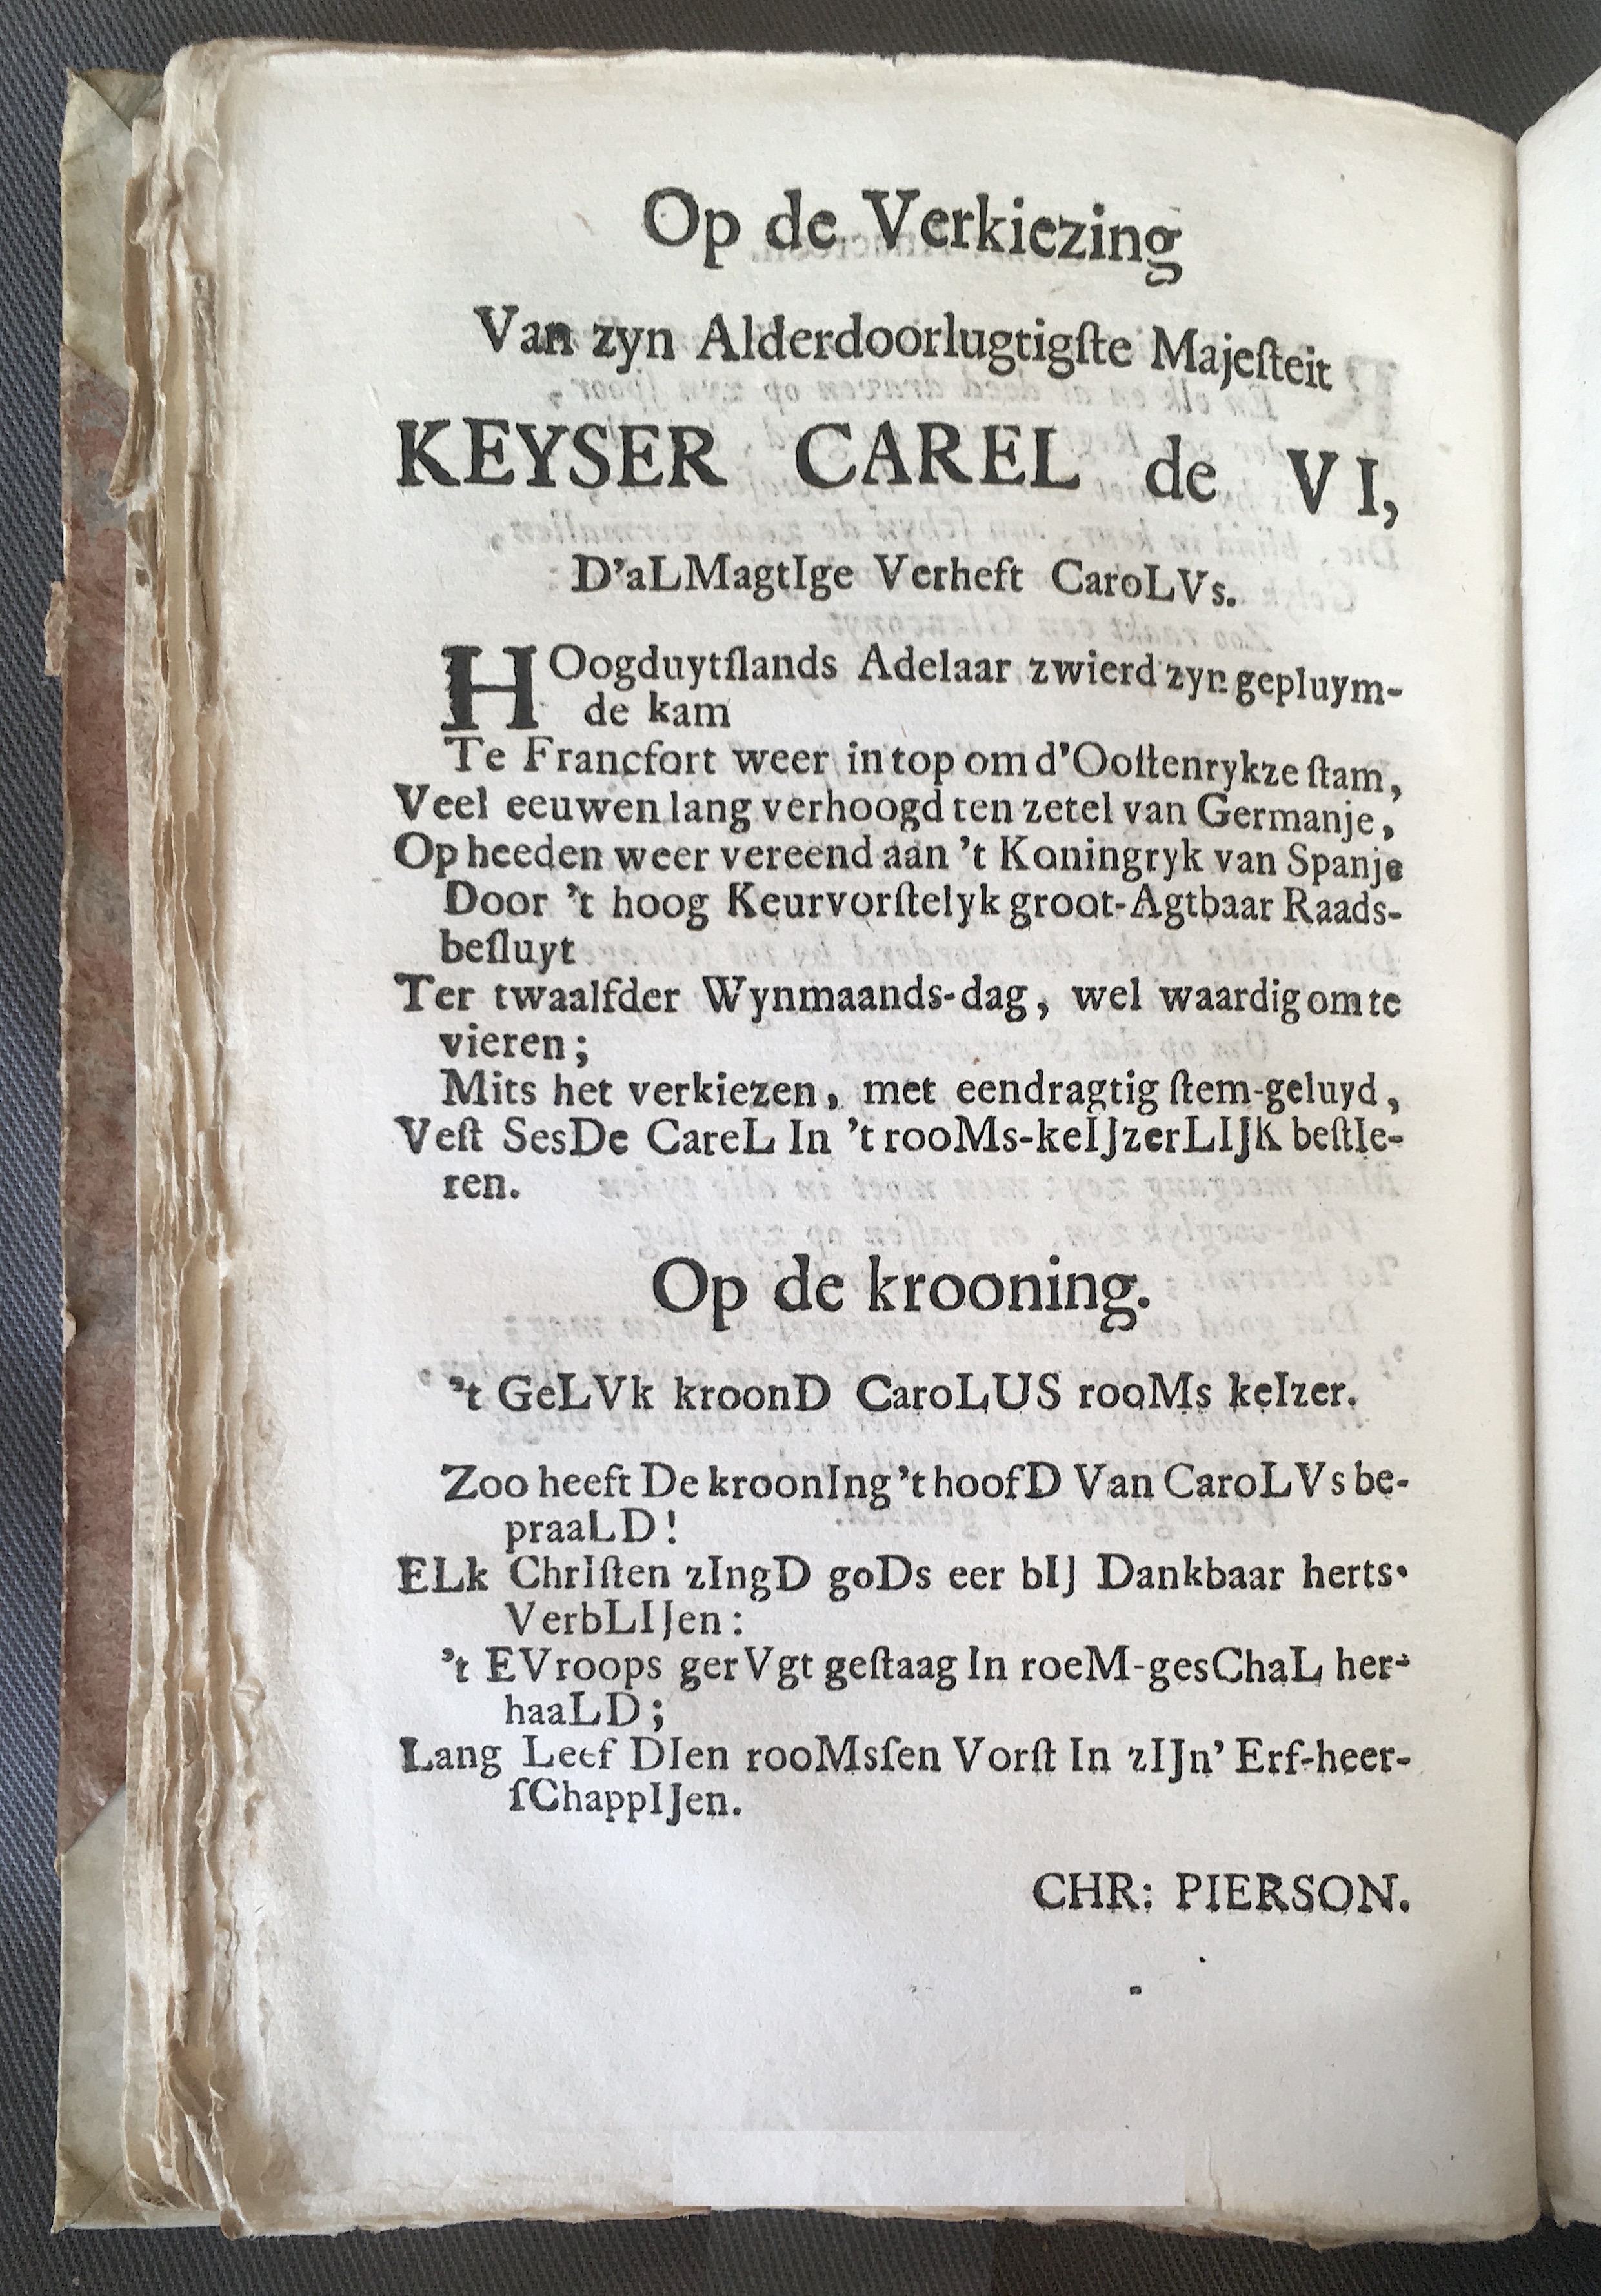 Op de Verkiezing
Van zyn Alderdoorlugtigſte Majeſteit
KEYSER CAREL de VI,
D’aLMagtIge Verheft CaroLVs.
HOogduytſlands Adelaar zwierd zyn gepluym-
de kam
Te Francfort weer in top om d’Ooſtenrykze ſtam,
Veel eeuwen lang verhoogd ten zetel van Germanje,
Op heeden weer vereend aan ’t Koningryk van Spanje
Door ’t hoog Keurvorſtelyk groot-Agtbaar Raads-
beſluyt
Ter twaalfder Wynmaands-dag, wel waardig om te
vieren;
Mits het verkiezen, met eendragtig ſtem-geluyd,
Veſt SesDe CareL In ’t rooMs-keIJzerLIJK beſtIe-
ren.
Op de krooning.
’t GeLVk kroonD CaroLUS rooMs keIzer.
Zoo heeft De kroonIng ’t hoofD Van CaroLVs be-
praaLD!
ELk ChrIſten zIngD goDs eer bIJ Dankbaar herts-
VerbLIJen:
’t EVroops gerVgt geſtaag In roeM-gesChaL her-
haaLD;
Lang Leef DIen rooMsſen Vorſt In zIJn’ Erf-heer-
ſChappIJen.
CHR: PIERSON.